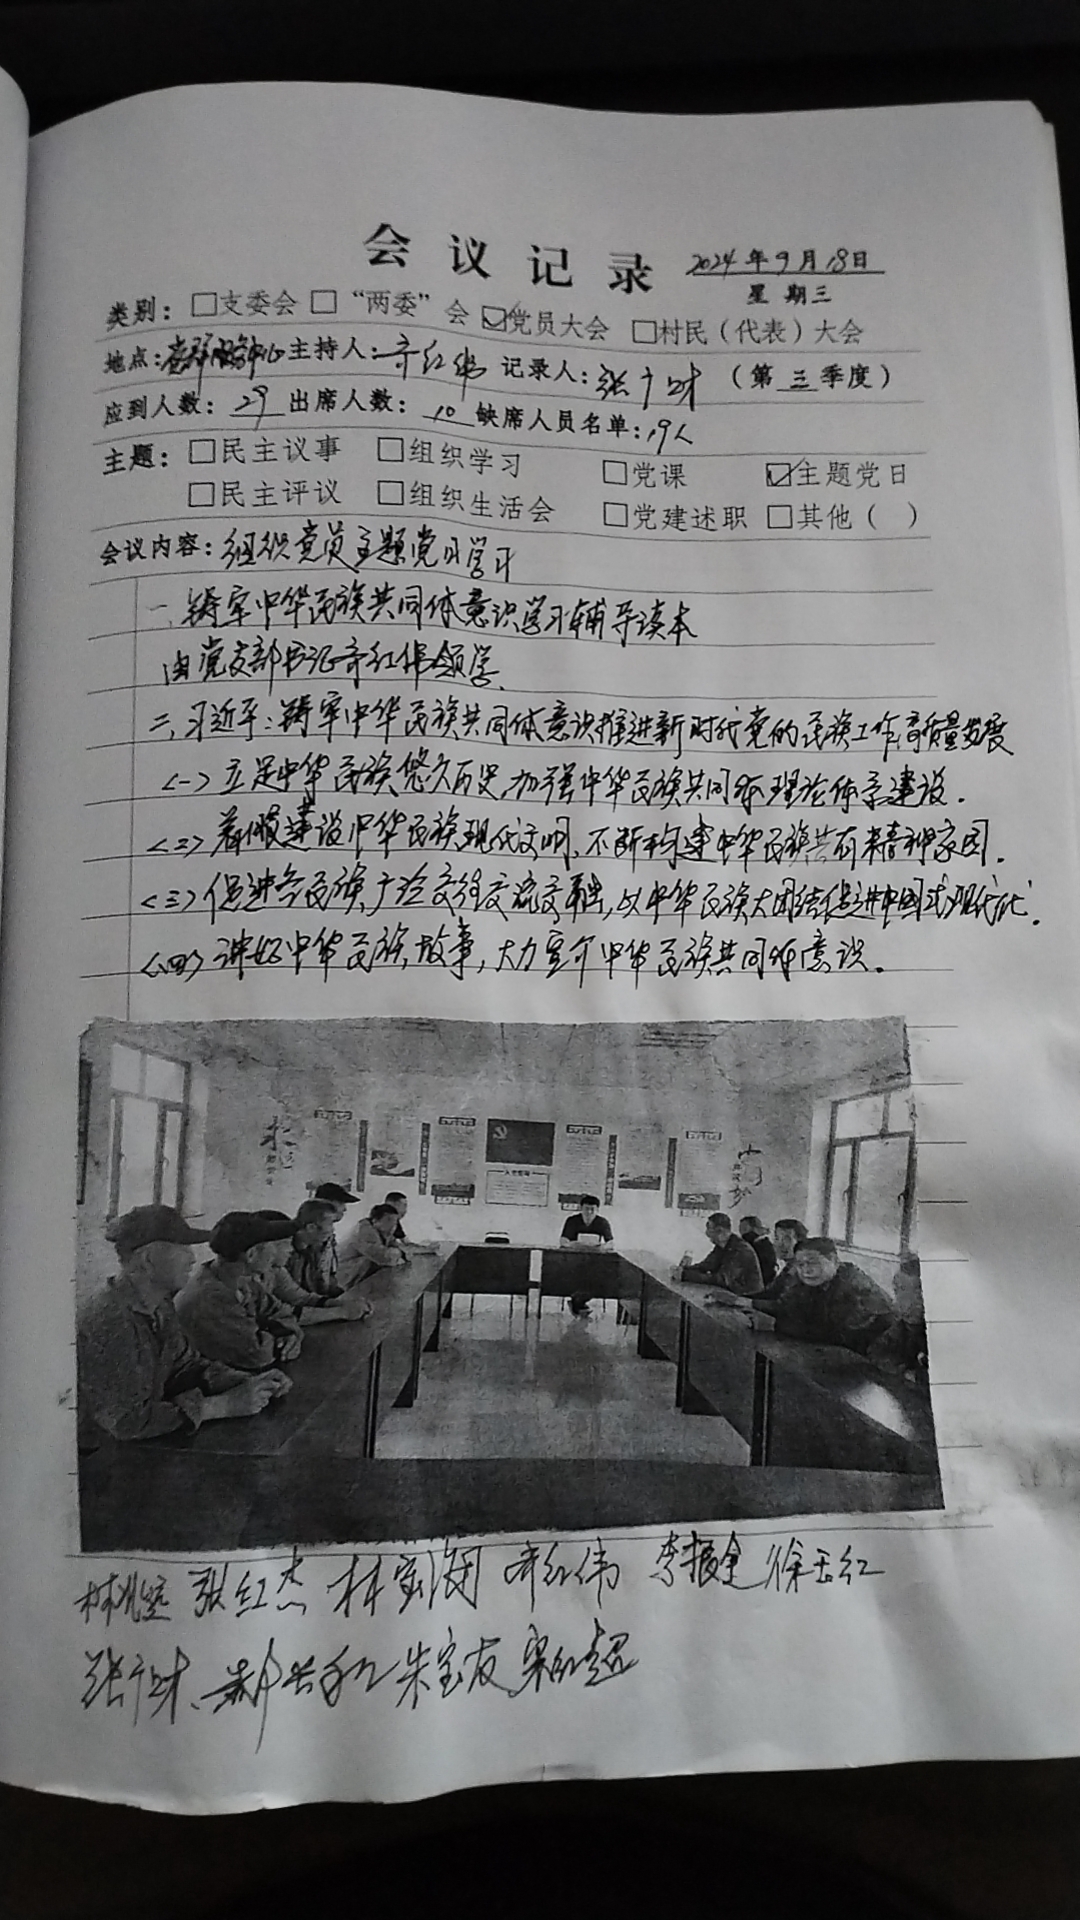 会议记录 2024年9月18日
星期三
类别：□支委会 □“两委”会 ☑党员大会 □村民（代表）大会
地点：党群服务中心 主持人：齐红伟 记录人：张广财 （第三季度）
应到人数：29 出席人数：10 缺席人员名单：19人
主题：□民主议事 □组织学习 □党课 ☑主题党日
□民主评议 □组织生活会 □党建述职 □其他（ ）
会议内容：组织党员主题党日学习
一、铸牢中华民族共同体意识学习辅导读本
由党支部书记齐红伟领学、
二、习近平：铸牢中华民族共同体意识推进新时代党的民族工作高质量发展
<一>立足中华民族悠久历史，加强中华民族共同体理论体系建设.
<二>着眼建设中华民族现代文明、不断构建中华民族共有精神家园.
<三>促进各民族广泛交往交流交融，以中华民族大团结促进中国式现代化.
<四>讲好中华民族故事，大力宣介中华民族共同体意识。
张红杰 林宝润 齐红伟 李振全 徐玉红
张广财、朱宝友 梁红超